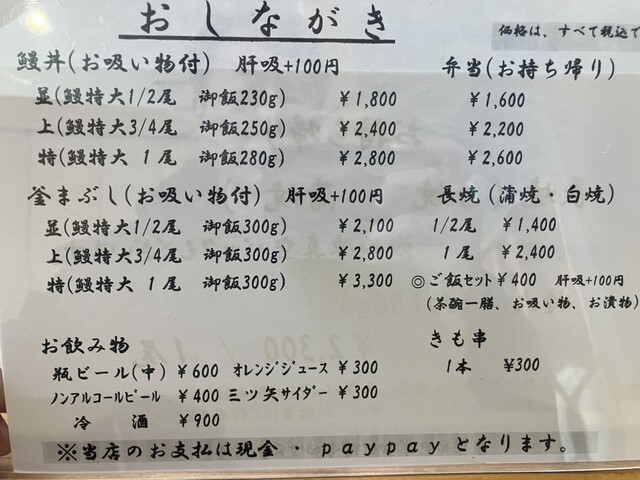 おしながき
価格は、すべて税込で
鰻丼(お吸い物付) 肝吸+100円
並(鰻特大1/2尾 御飯230g) ￥1,800
上(鰻特大3/4尾 御飯250g) ￥2,400
特(鰻特大 1尾 御飯280g) ￥2,800
弁当(お持ち帰り)
￥1,600
￥2,200
￥2,600
釜まぶし(お吸い物付) 肝吸+100円
並(鰻特大1/2尾 御飯300g) ￥2,100
上(鰻特大3/4尾 御飯300g) ￥2,800
特(鰻特大 1尾 御飯300g) ￥3,300
長焼(蒲焼・白焼)
1/2尾 ￥1,400
1尾 ￥2,400
◎ご飯セット￥400 肝吸+100円
(茶碗一膳、お吸い物、お漬物)
お飲み物
瓶ビール(中) ￥600 オレンジジュース ￥300
ノンアルコールビール ￥400 三ツ矢サイダー ￥300
冷酒 ￥900
きも串
1本 ¥300
※当店のお支払は現金・paypayとなります。